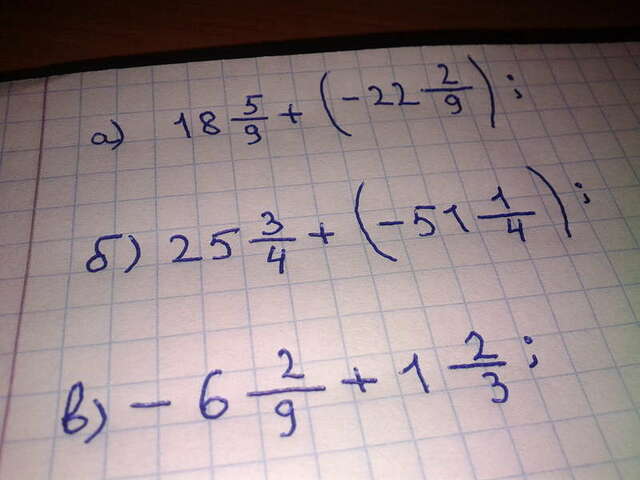 а) 18 5/9 + (-22 2/9);
б) 25 3/4 + (-51 1/4);
в) -6 2/9 + 1 2/3;